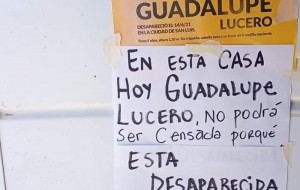 GUADALUPE
LUCERO
DESAPARECIÓ EL 14/6/21
EN LA CIUDAD DE SAN LUIS.
EN ESTA CASA
HOY GUADALUPE
LUCERO, NO PODRÁ
SER CENSADA PORQUÉ
ESTA
DESAPARECIDA